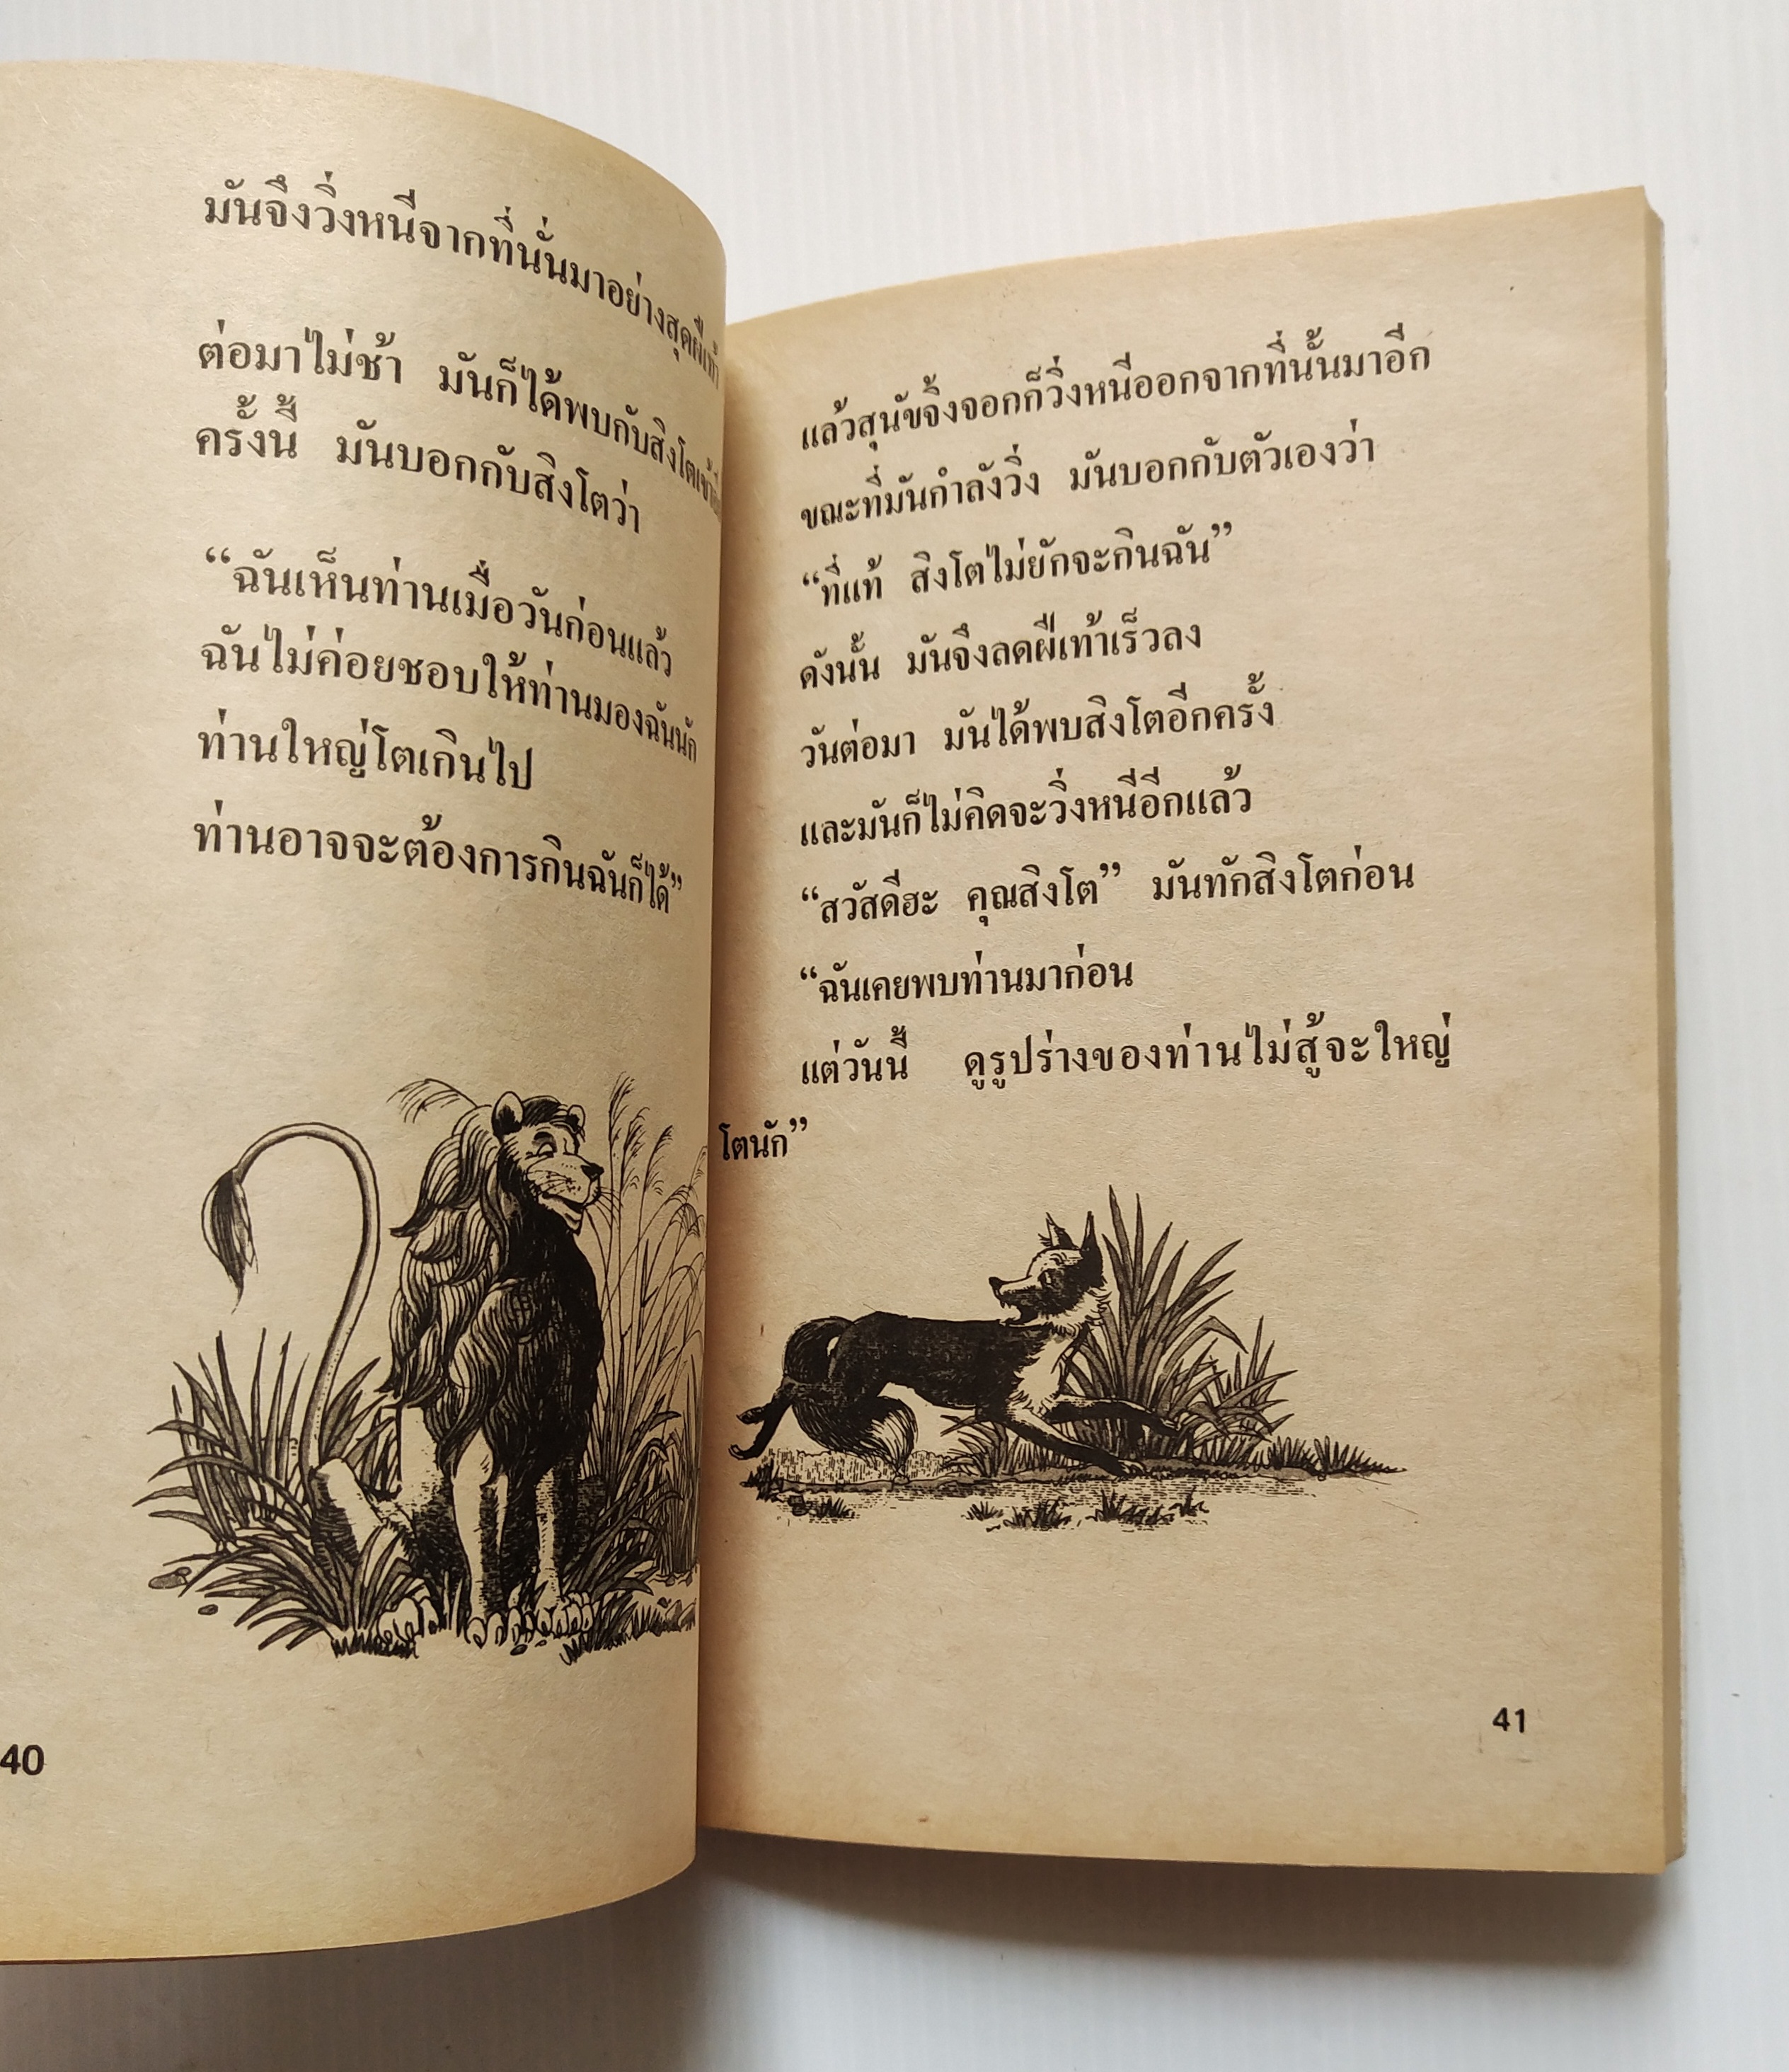 มันจึงวิ่งหนีจากที่นั่นมาอย่างสุดฝีเท้า
ต่อมาไม่ช้า มันก็ได้พบกับสิงโตเข้าอีก
ครั้งนี้ มันบอกกับสิงโตว่า
“ฉันเห็นท่านเมื่อวันก่อนแล้ว
ฉันไม่ค่อยชอบให้ท่านมองฉันนัก
ท่านใหญ่โตเกินไป
ท่านอาจจะต้องการกินฉันก็ได้”
40
แล้วสุนัขจิ้งจอกก็วิ่งหนีออกจากที่นั้นมาอีก
ขณะที่มันกำลังวิ่ง มันบอกกับตัวเองว่า
“ที่แท้ สิงโตไม่ยักจะกินฉัน”
ดังนั้น มันจึงลดฝีเท้าเร็วลง
วันต่อมา มันได้พบสิงโตอีกครั้ง
และมันก็ไม่คิดจะวิ่งหนีอีกแล้ว
“สวัสดีฮะ คุณสิงโต” มันทักสิงโตก่อน
“ฉันเคยพบท่านมาก่อน
แต่วันนี้ ดูรูปร่างของท่านไม่สู้จะใหญ่
โตนัก”
41